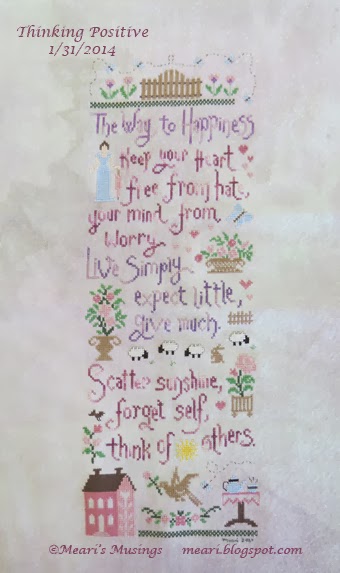 Thinking Positive
1/31/2014
The Way to Happiness
Keep your Heart
free from hate,
your mind from
worry
Live Simply
expect little,
give much.
Scatter sunshine,
forget self,
think of others.
©Meari's Musings meari.blogspot.com